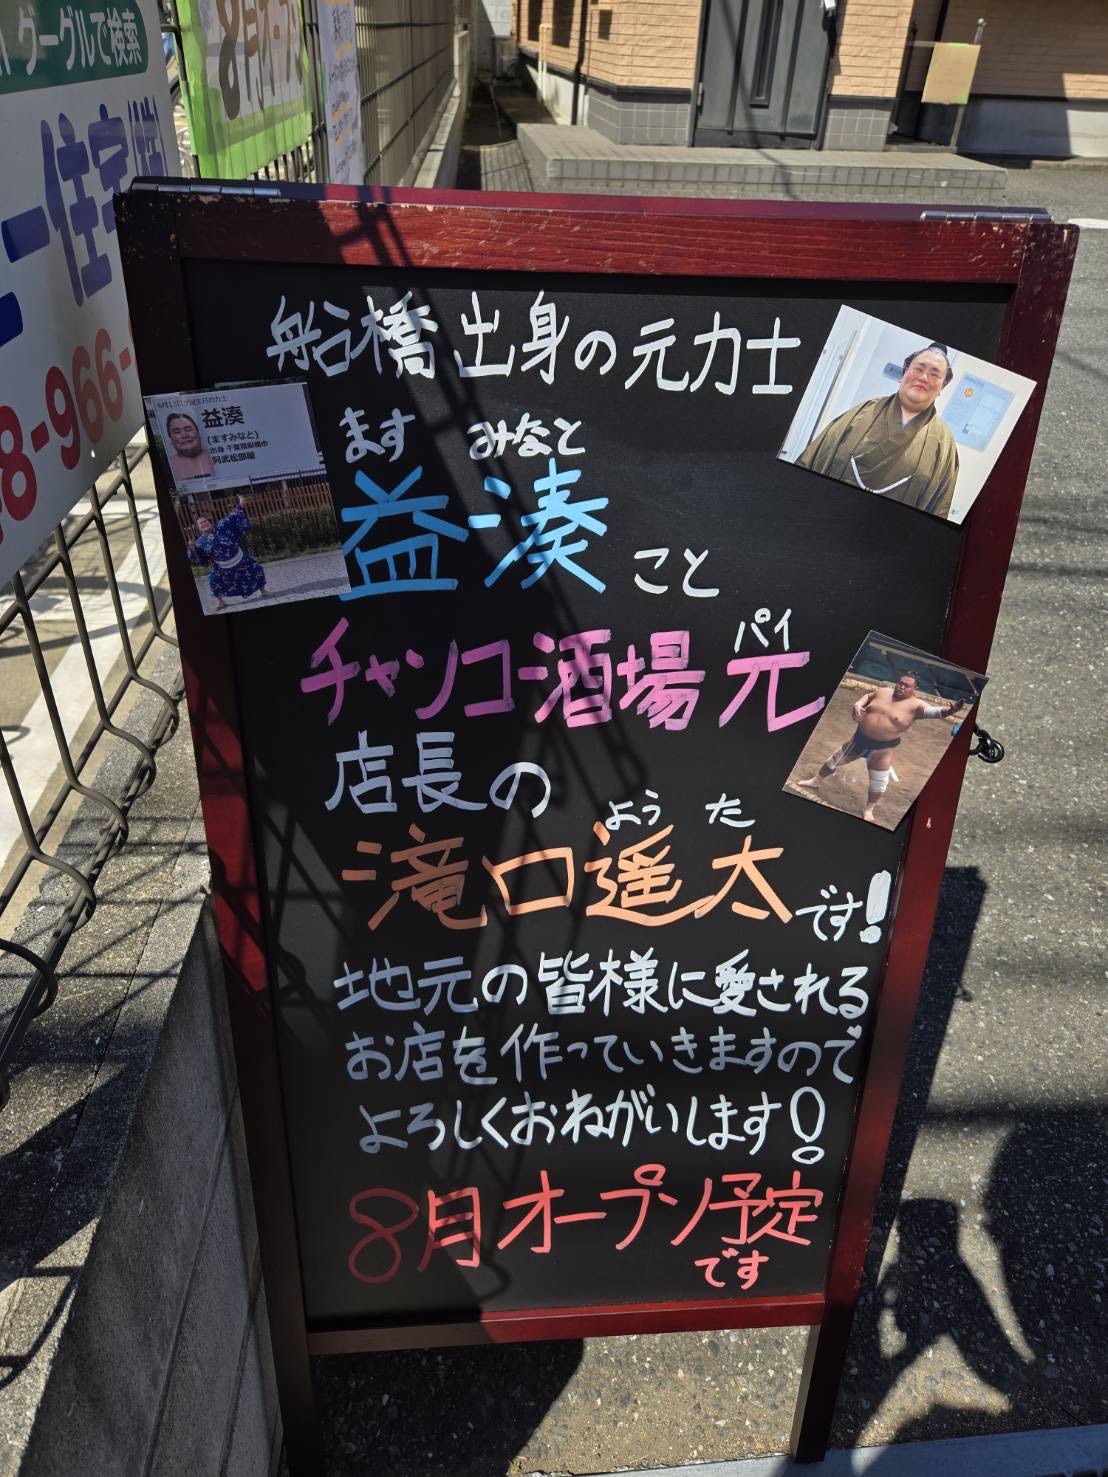 グーグルで検索
住宅㈱
8-966-
8月
船橋出身の元力士
ます みなと
益湊こと
パイ
チャンコ酒場 元
店長の
よう た
滝口遥太です!
地元の皆様に愛される
お店を作っていきますので
よろしくおねがいします!
8月オープン予定
です
6月13日が誕生日の力士
益湊
(ますみなと)
出身 千葉県船橋市
阿武松部屋